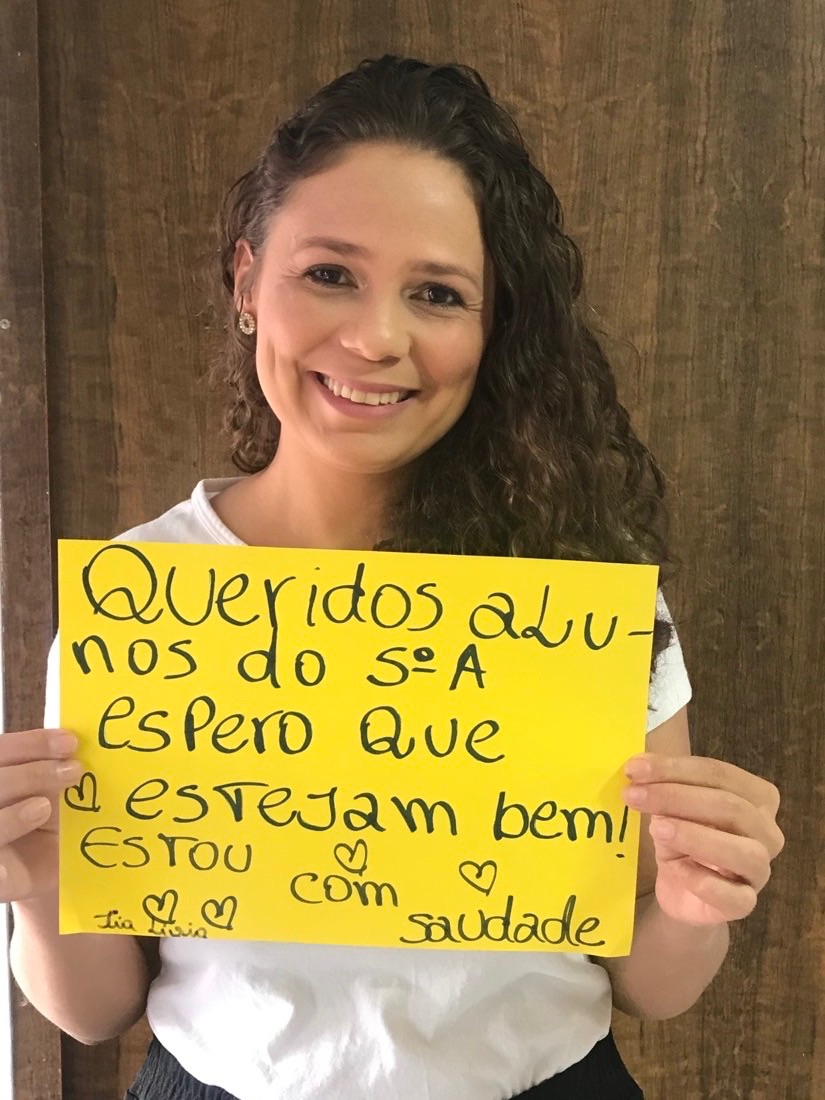 Queridos alu-
nos do 5º A
espero que
estejam bem!
Estou com saudade
Tia Livia